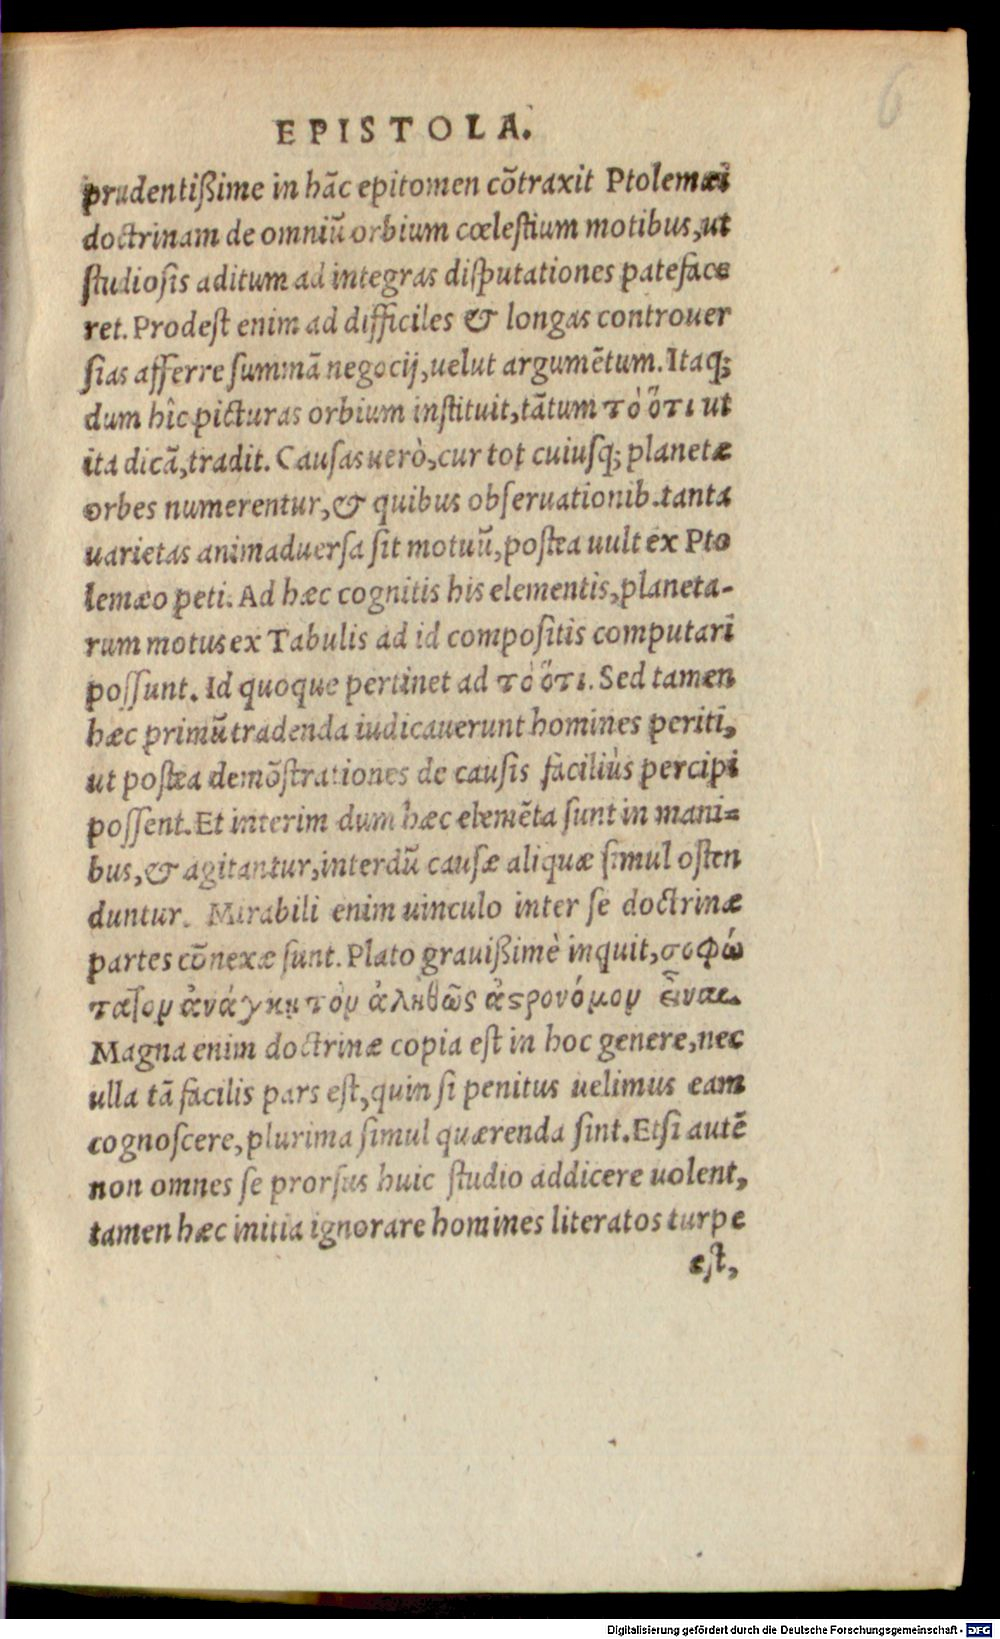 6
EPISTOLA.
prudentißime in hãc epitomen cõtraxit Ptolemæi
doctrinam de omniũ orbium cœlestium motibus, ut
studiosis aditum ad integras disputationes pateface
ret. Prodest enim ad difficiles & longas controuer
sias afferre summã negocij, uelut argumẽtum. Itaq;
dum hîc picturas orbium instituit, tãtum τὸ ὅτι ut
ita dicã, tradit. Causas uerò, cur tot cuiusq; planetæ
orbes numerentur, & quibus obseruationib. tanta
uarietas animaduersa sit motuũ, postea uult ex Pto
lemæo peti. Ad hæc cognitis his elementis, planeta-
rum motus ex Tabulis ad id compositis computari
possunt. Id quoque pertinet ad τὸ ὅτι. Sed tamen
hæc primũ tradenda iudicauerunt homines periti,
ut postea demõstrationes de causis faciliùs percipi
possent. Et interim dum hæc elemẽta sunt in mani=
bus, & agitantur, interdũ causæ aliquæ simul osten
duntur. Mirabili enim uinculo inter se doctrinæ
partes cõnexæ sunt. Plato grauißimè inquit, σοφώ
τατον ἀνάγκη τὸν ἀληθῶς ἀστρονόμον εἶναι.
Magna enim doctrinæ copia est in hoc genere, nec
ulla tã facilis pars est, quin si penitus uelimus eam
cognoscere, plurima simul quærenda sint. Etsi autẽ
non omnes se prorsus huic studio addicere uolent,
tamen hæc initia ignorare homines literatos turpe
est,
Digitalisierung gefördert durch die Deutsche Forschungsgemeinschaft - DFG